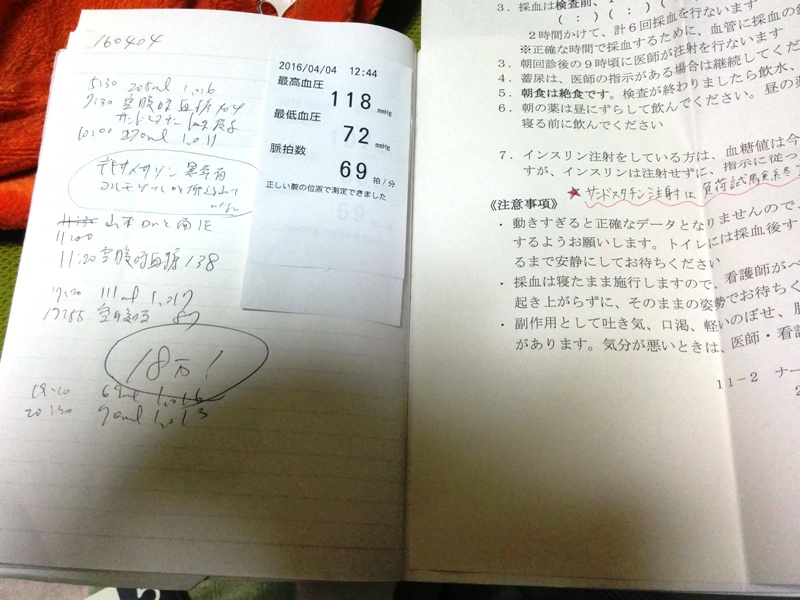 160404
5:30 205ml 1.016
7:30 空腹時血糖
10:00 270ml 1.011
デキサメサゾン
11:00
11:20 空腹時血糖 138
17:20 111ml 1.017
18万1
19:10 69ml 1.016
20:30 90ml 1.013
2016/04/04 12:44
最高血圧
118 mmHg
最低血圧
72 mmHg
脈拍数
69 拍/分
正しい腕の位置で測定できました
3. 採血は検査前、
( : ) ( : )
2時間かけて、計6回採血を行ないます
※正確な時間で採血するために、血管に採血の
3. 朝回診後の9時頃に医師が注射を行ないます
4. 蓄尿は、医師の指示がある場合は継続してくだ
5. 朝食は絶食です。検査が終わりましたら飲水、
6. 朝の薬は昼にずらして飲んでください。昼の薬
寝る前に飲んでください
7. インスリン注射をしている方は、血糖値は今
すが、インスリンは注射せずに、指示に従っ
★サンドスタチン注射は負荷試験終
《注意事項》
・動きすぎると正確なデータとなりませんので、
するようお願いします。トイレには採血後す
るまで安静にしてお待ちください
・採血は寝たまま施行しますので、看護師がベ
起き上がらずに、そのままの姿勢でお待ちく
・副作用として吐き気、口渇、軽いのぼせ、
があります。気分が悪いときは、医師・看
11-2 ナー